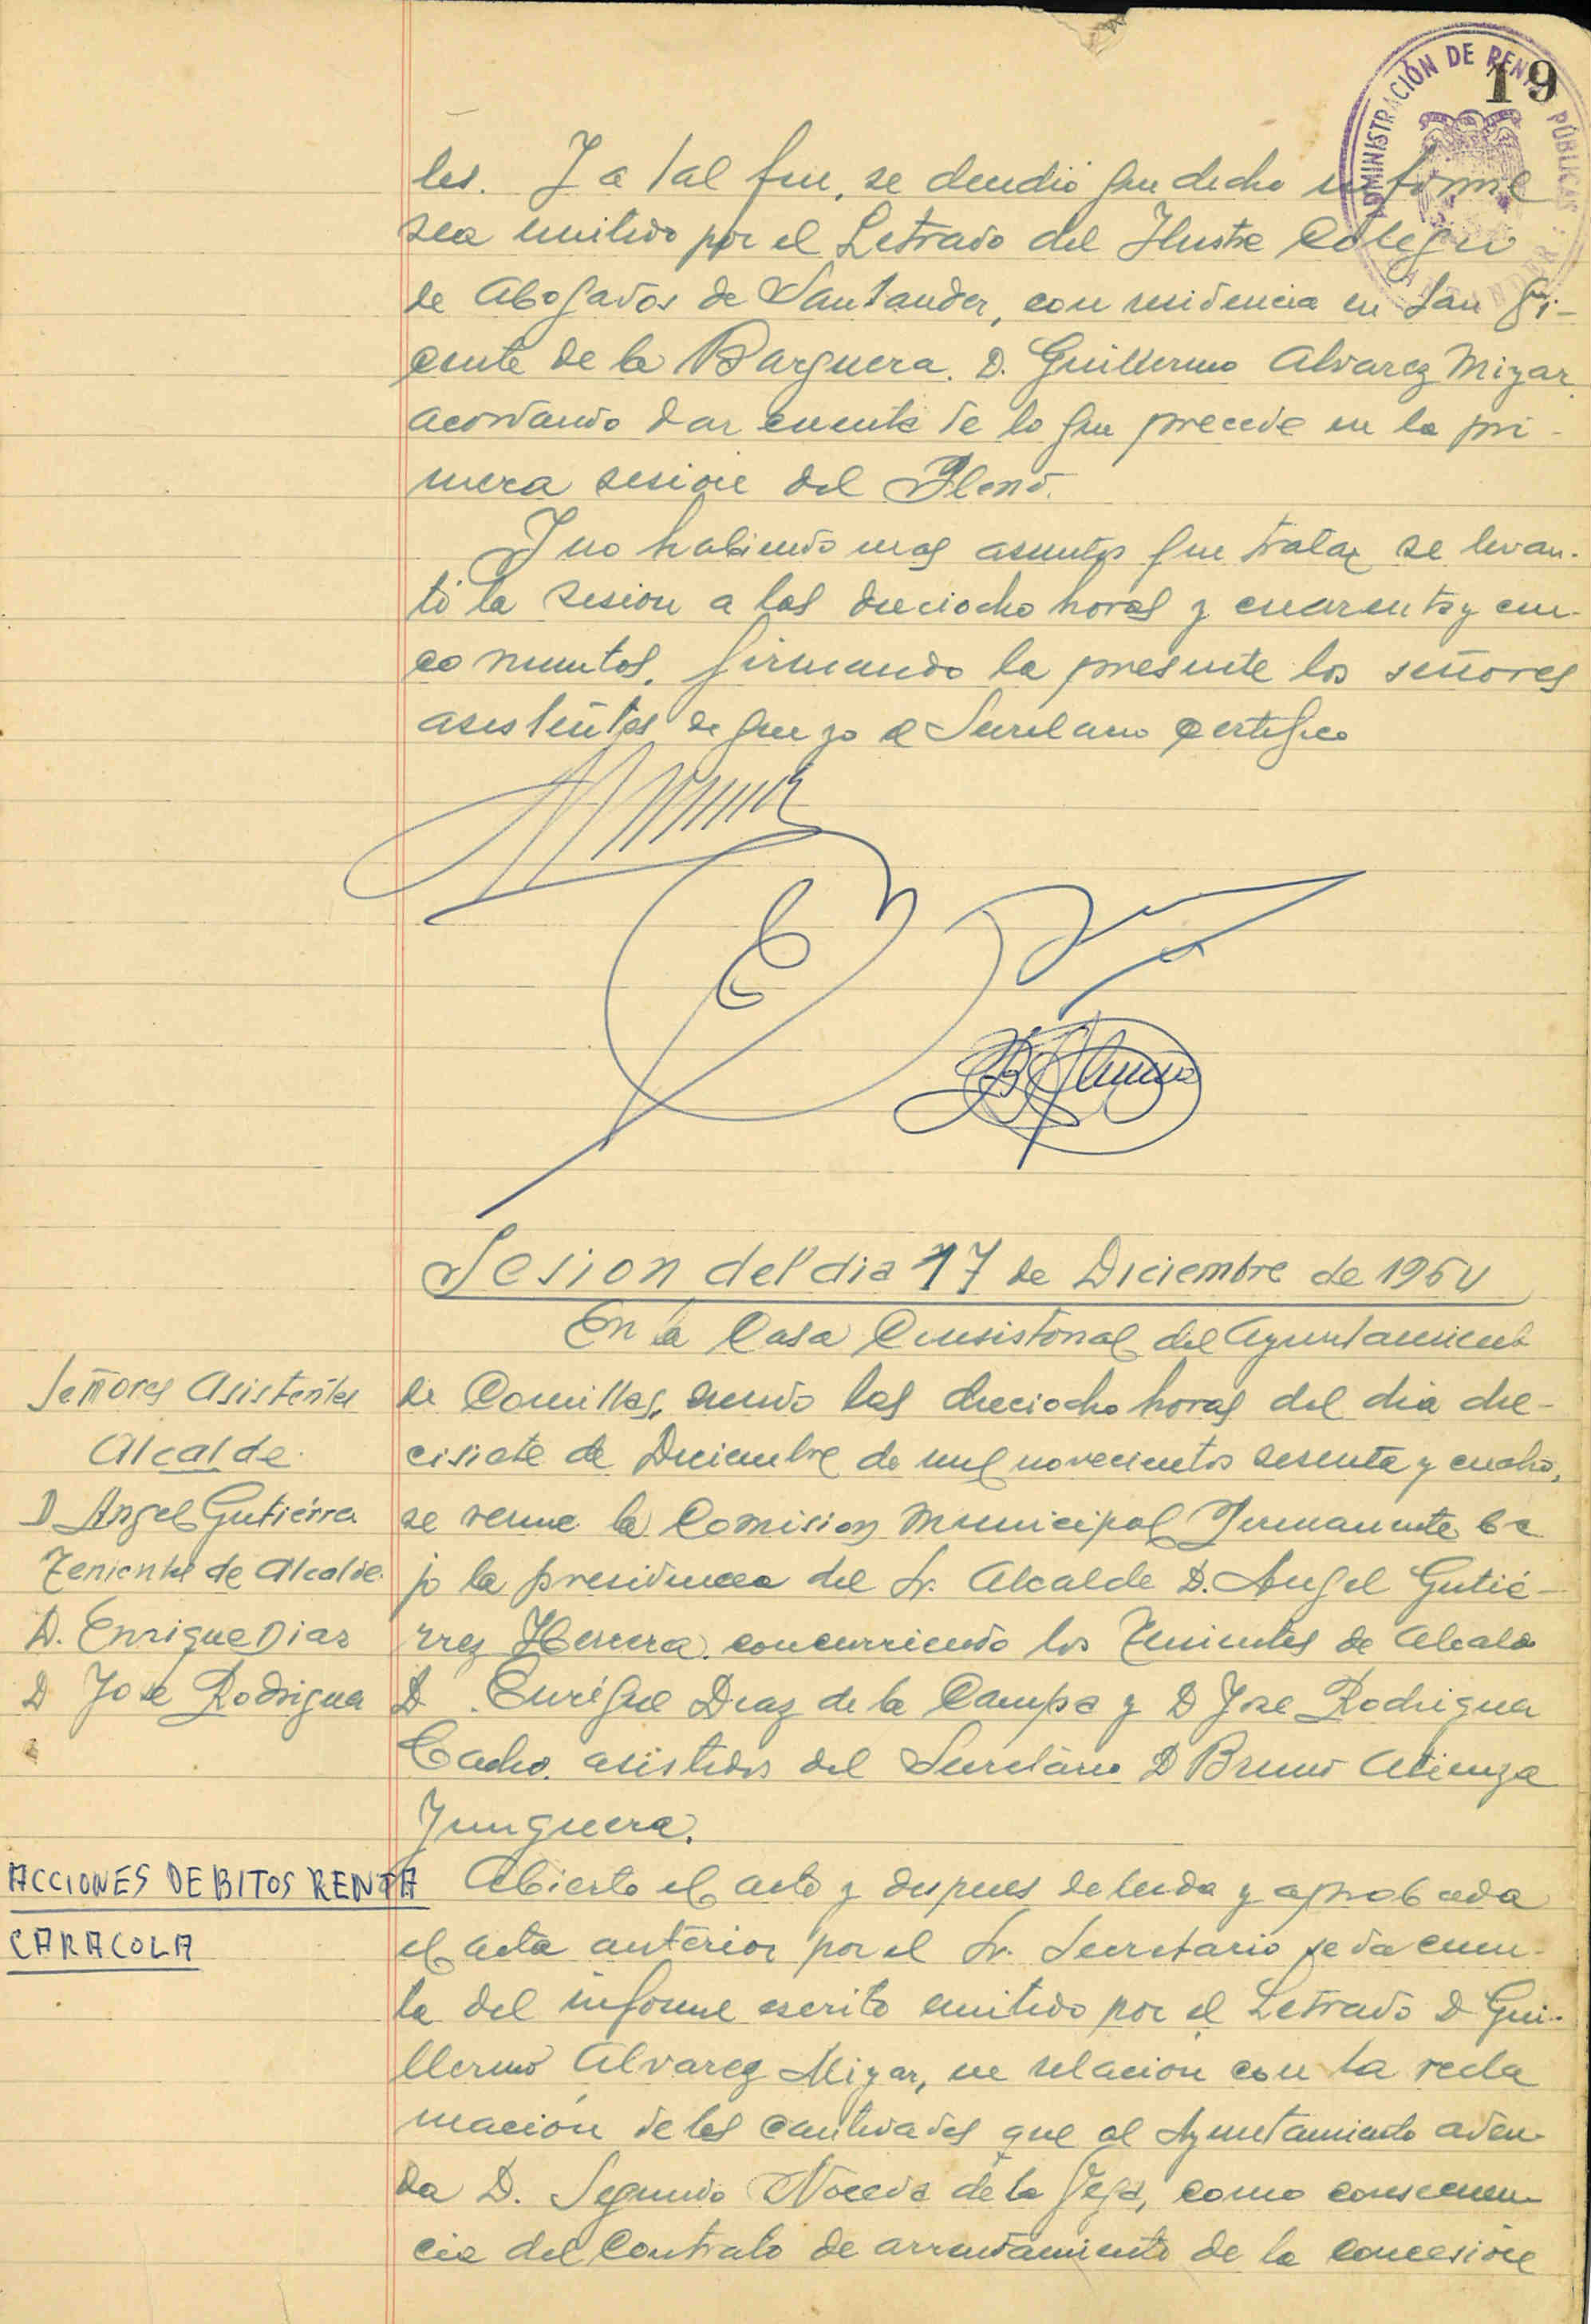 19
ADMINISTRACIÓN DE RENTAS PÚBLICAS
SANTANDER
les. Y a tal fin, se decidió que dicho informe
sea emitido por el Letrado del Ilustre Colegio
de Abogados de Santander, con residencia en San Vi-
cente de la Barquera. D. Guillermo Alvarez Miyar,
acordando dar cuenta de lo que precede en la pri-
mera sesion del Pleno.
Y no habiendo mas asuntos que tratar se levan-
tó la sesion a las dieciocho horas y cuarenta y cin-
co minutos, firmando la presente los señores
asistentes de que yo el Secretario certifico
Sesion del dia 17 de Diciembre de 1964
En la Casa Consistorial del Ayuntamiento
Señores Asistentes
Alcalde
D Angel Gutiérrez
Tenientes de Alcalde
D. Enrique Diaz
D Jose Rodriguez
de Comillas, siendo las dieciocho horas del dia die-
cisiete de Diciembre de mil novecientos sesenta y cuatro,
se reune la Comision Municipal Permanente ba
jo la presidencia del Sr. Alcalde D. Angel Gutié-
rrez Herrera, concurriendo los Tenientes de Alcalde
D. Enrique Diaz de la Campa y D Jose Rodriguez
Cacho, asistidos del Secretario D Bruno Atienza
Junquera.
ACCIONES DEBITOS RENTA
CARACOLA
Abierto el acto y despues de leida y aprobada
el acta anterior por el Sr. Secretario se da cuen-
ta del informe escrito emitido por el Letrado D Gui-
llermo Alvarez Miyar, en relación con la recla
macion de las cantidades que al Ayuntamiento adeu-
da D. Segundo Noceda de la Vega, como consecuen-
cia del Contrato de arrendamiento de la concesion